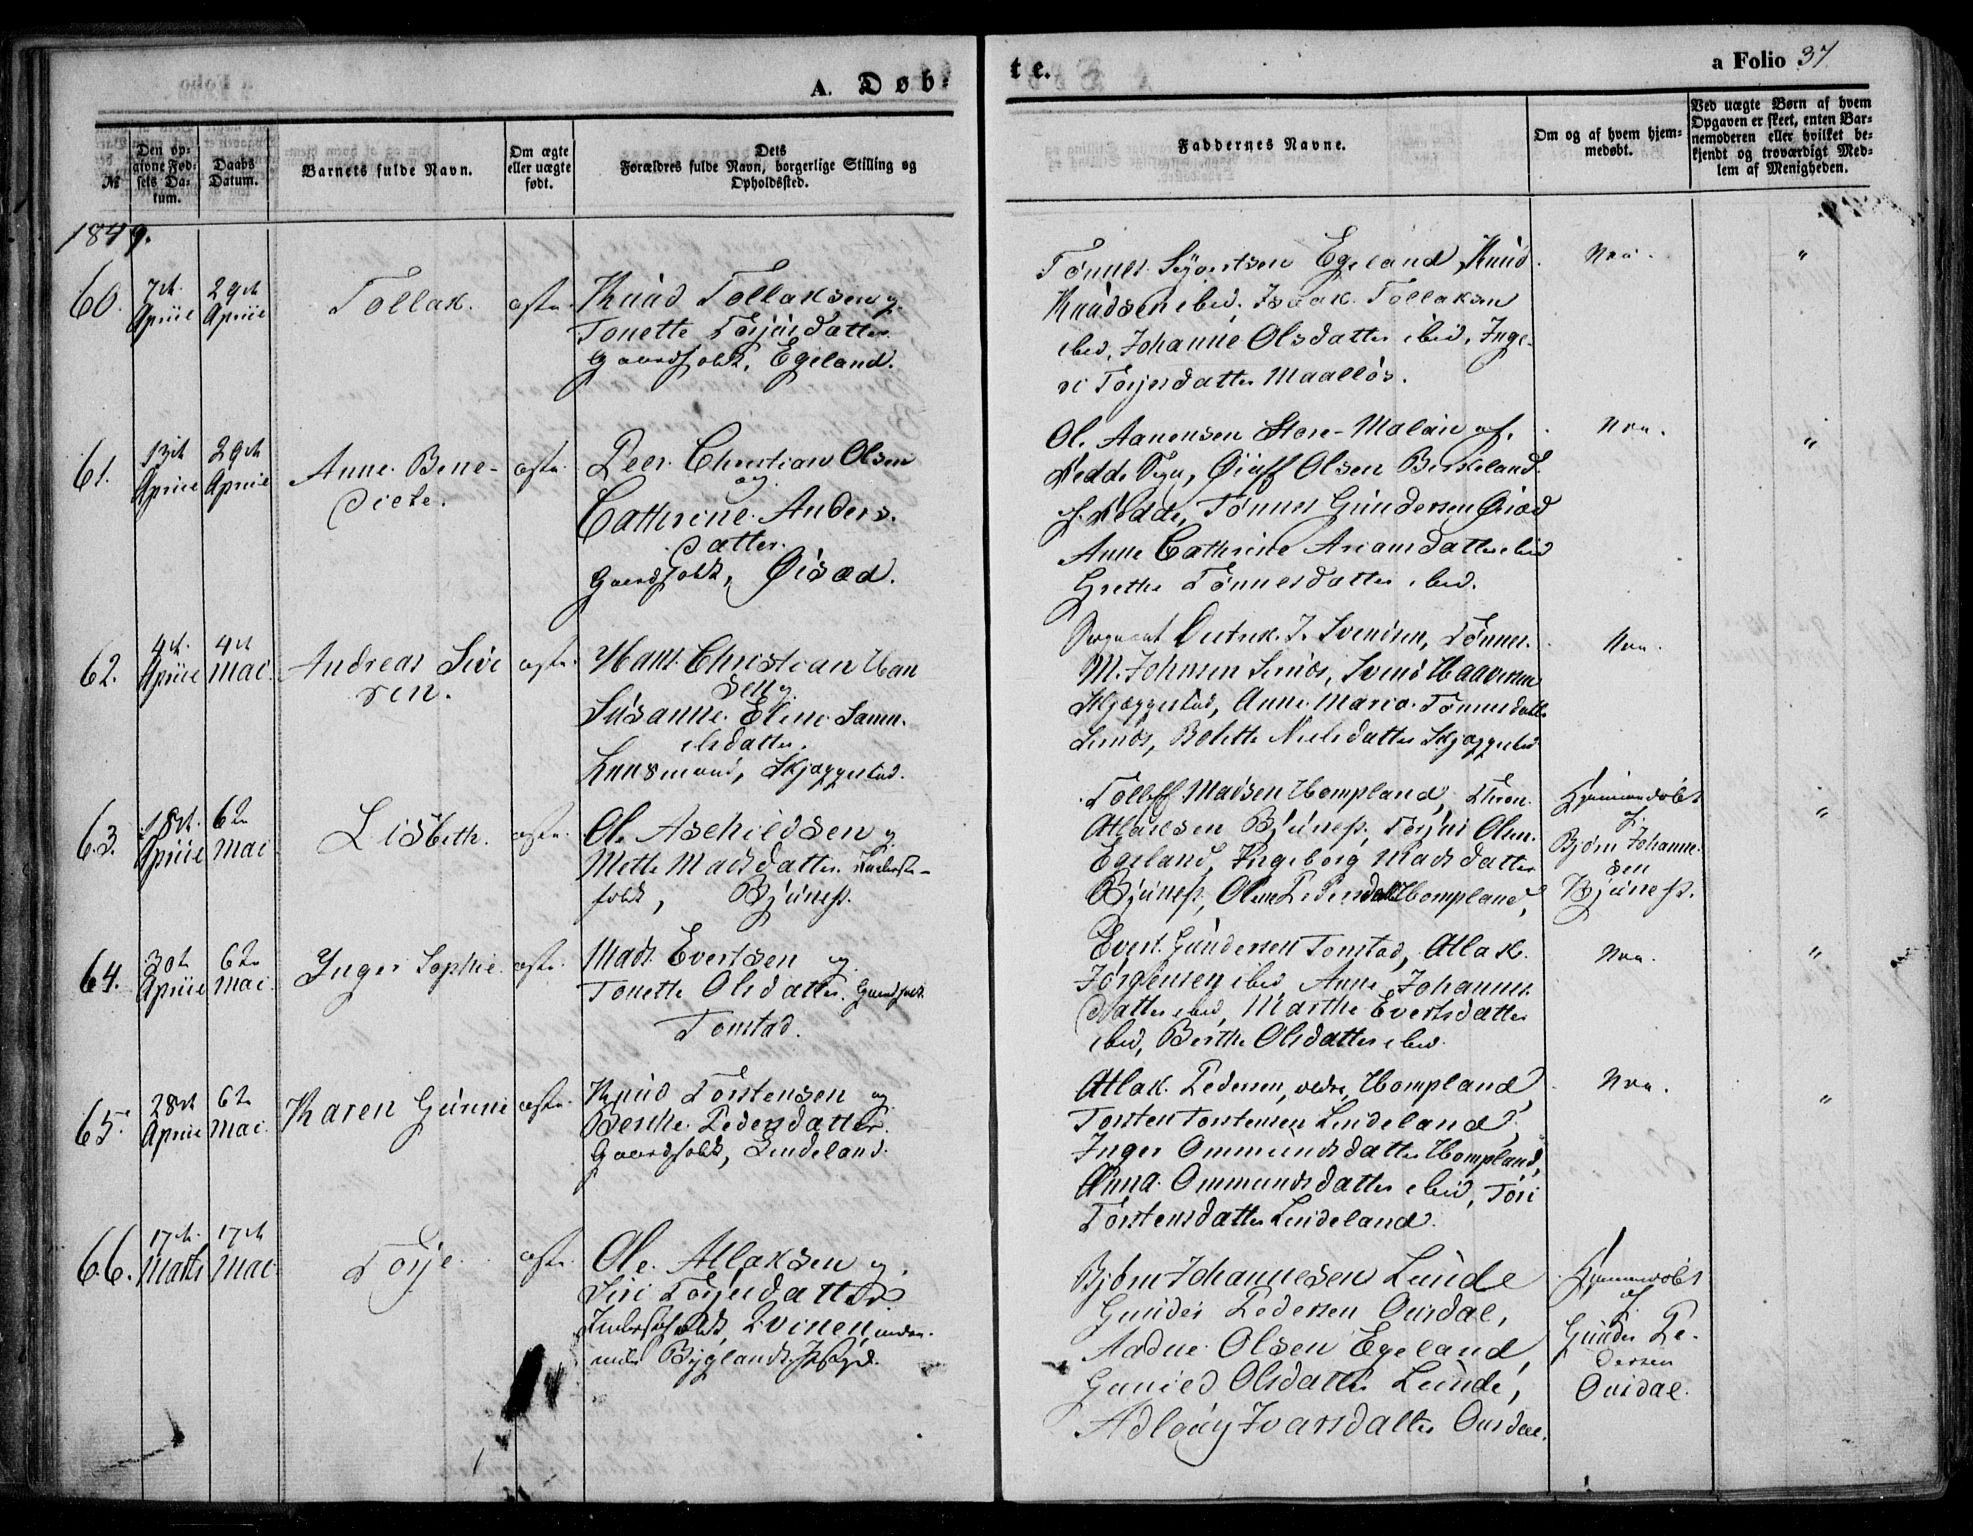 A. Døb-
te.
a Folio 37
№
Den op-
givne Fød-
sels Da-
tum.
Daabs
Datum.
Barnets fulde Navn.
Om ægte
eller uægte
født.
Dets
Forældres fulde Navn, borgerlige Stilling og
Opholdssted.
Faddernes Navne.
Om og af hvem hjem-
medøbt.
Ved uægte Børn af hvem
Opgaven er skeet, enten Bar-
nemoderen eller hvilket be-
kjendt og troværdigt Med-
lem af Menigheden.
1849.
60.
7de
April
29de
April
Tollak.
ægte.
Knud Tollaksen og
Tonette Torjusdatter
Gaardfolk, Egeland.
Tønnes Sijvertsen Egeland, Knud
Knudsen ibid, Isaak Tollaksen
ibid, Johanne Olsdatter ibid, Inge-
ri Torjesdatter
Nei.
"
61.
13de
April
29de
April
Anne Bene-
dicte.
ægte.
Peer Christian Olsen
og
Cathrine Anders-
datter.
Gaardfolk, Øisæd.
Ole Aanensen Store-
Olsen Birkeland
Tønnes Gundersen Øisæd
Anne Cathrine datter ibid
Grethe Tønnesdatter ibid.
Nei.
"
62.
4de
April
4de
Mai.
Andreas Seve
ren.
ægte.
Hans Christian Han
sen og
Susanne Elene Samu-
elsdatter.
Huusmand, Skjæggestad.
Sergeant Svendsen, Tønnes
M. Johnsen Svend Haaversen
Skjæggestad, Anne Maria Tønnesdatter
Bolette Nielsdatter Skjæggestad
Nei.
63.
18de
April
6te
Mai
Lisbeth.
ægte.
Ole Aschildsen og
Mette Madsdatter
folk, Bjuness.
Tolleff Madsen Hompland,
Atlaksen Bjuness, Torjus Olsen
Egeland, Ingeborg Madsdatter
Bjuness, Olene Pedersdatter Hompland,
Hjemmedøbt
af
Bjørn Johanne-
sen
Bjuness.
"
64.
30te
April
6te
Mai.
Inger Sophie.
ægte.
Mads Evertsen og
Tonette Olsdatter. Gaardfolk
Tonstad.
Evert Gundersen Tonstad, Atlak
Jørgensen ibid Anne Johannes-
datter ibid, Marthe Evertsdatter
ibid, Berthe Olsdatter ibid
Nei.
"
65.
28de
April
6te
Mai.
Karen Gunne
ægte.
Knud Torstensen og
Berthe Pedersdatter.
Gaardfolk, Lindeland.
Atlak Pedersen, Hompland
Torsten Torstensen Lindeland,
Inger Ommundsdatter Hompland,
Anna Ommundsdatter ibid, Tori
Torstensdatter Lindeland.
Nei.
"
66.
17de
Marts
17de
Mai
Torje
ægte.
Ole Atlaksen og
Siri Torjusdatter
Inderstfolk
Byglands
Bjørn Johannesen Lunde
Gunder Pedersen Ousdal,
Aadne Olsen Egeland,
Gunild Olsdatter Lunde,
Adlaug Ivarsdatter Ousdal.
Hjemmedøbt
af
Gunder Pe-
dersen
Ousdal.